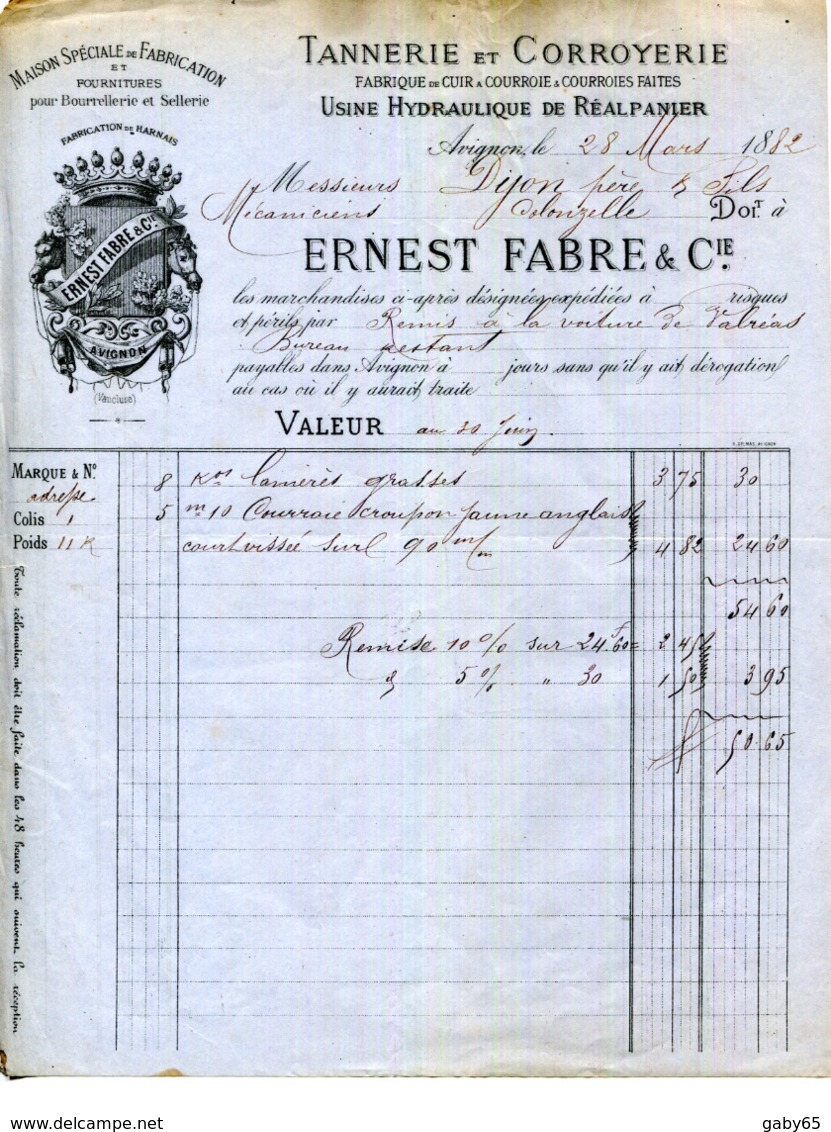 MAISON SPÉCIALE DE FABRICATION
ET
FOURNITURES
pour Bourrellerie et Sellerie
FABRICATION DE HARNAIS
ERNEST FABRE & CIE
AVIGNON
(Vaucluse)
TANNERIE ET CORROYERIE
FABRIQUE DE CUIR A COURROIE & COURROIES FAITES
USINE HYDRAULIQUE DE RÉALPANIER
Avignon, le 28 Mars 1882
Messieurs Dijon père & Fils
Mécaniciens Colonzelle DOIT à
ERNEST FABRE & CIE.
les marchandises ci-après désignées expédiées à risques
et périls par Remis à la voiture de Valréas
Bureau restant
payables dans Avignon à jours sans qu'il y ait dérogation
au cas où il y aurait traite
VALEUR au 30 Juin
MARQUE & No.
adresse
Colis 1
Poids 11 K
8 Kos lanières grasses 3 75 30
5 m 10 Courroie croupon jaune anglais
court vissée sur l 90 m/m 4 82 24 60
54 60
Remise 10 % sur 24f60 = 2 45
& 5 % " 30 1 50 3 95
50 65
Toute réclamation doit être faite dans les 48 heures qui suivent la réception
www.delcampe.net
gaby65